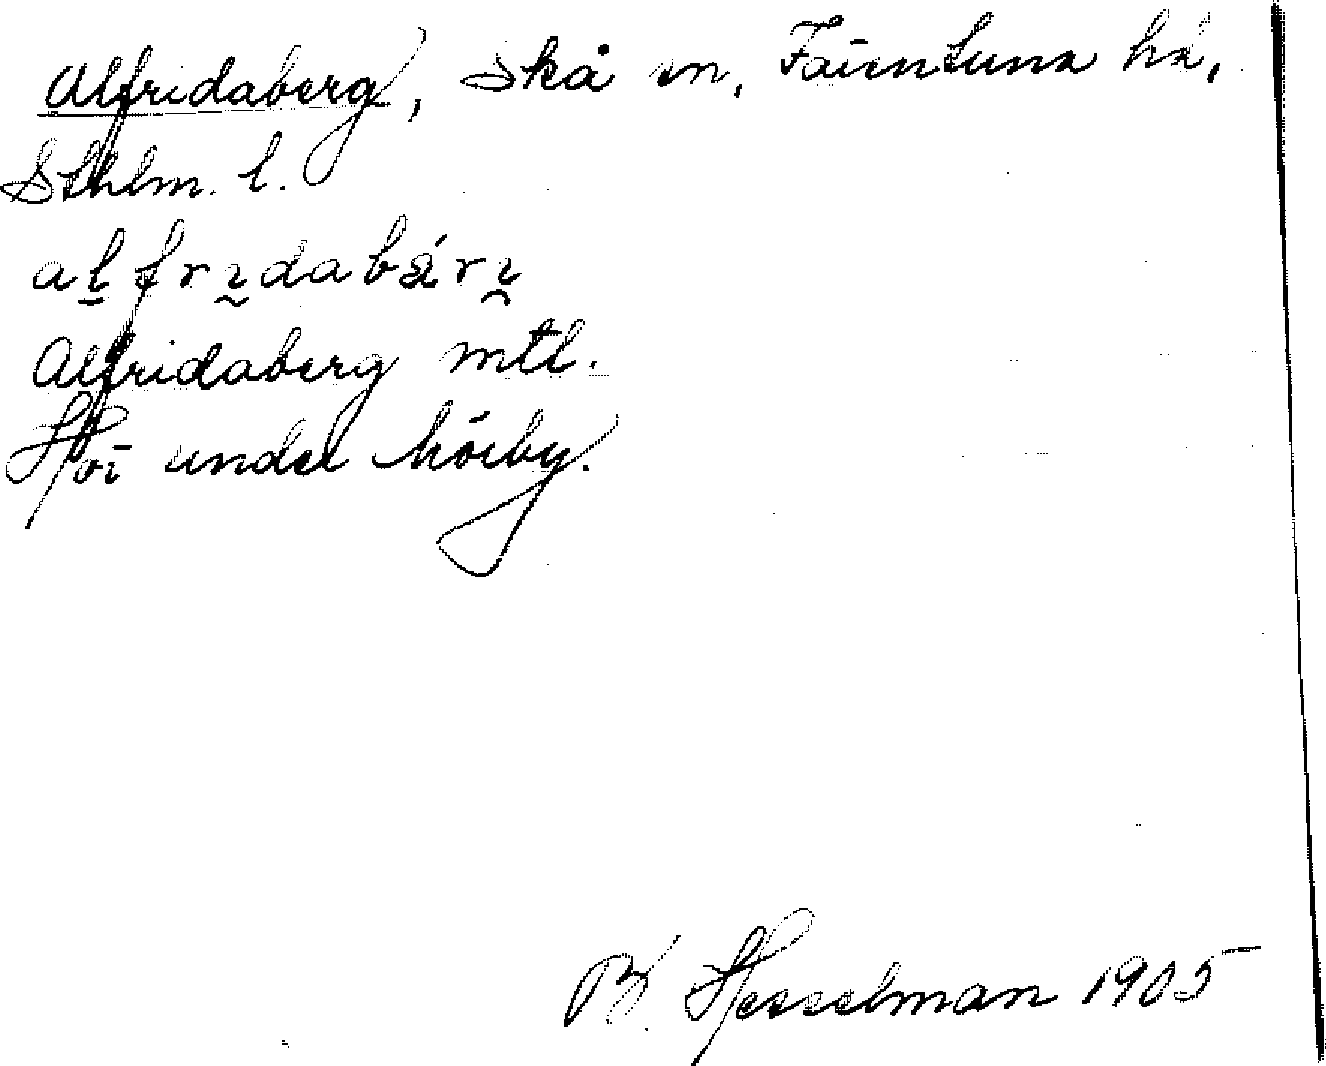 Alfridaberg, Skå sn, Färentuna hd,
Sthlm. l.
alfridabäri
Alfridaberg mtl.
under Mörby.
B. Hesselman 1905